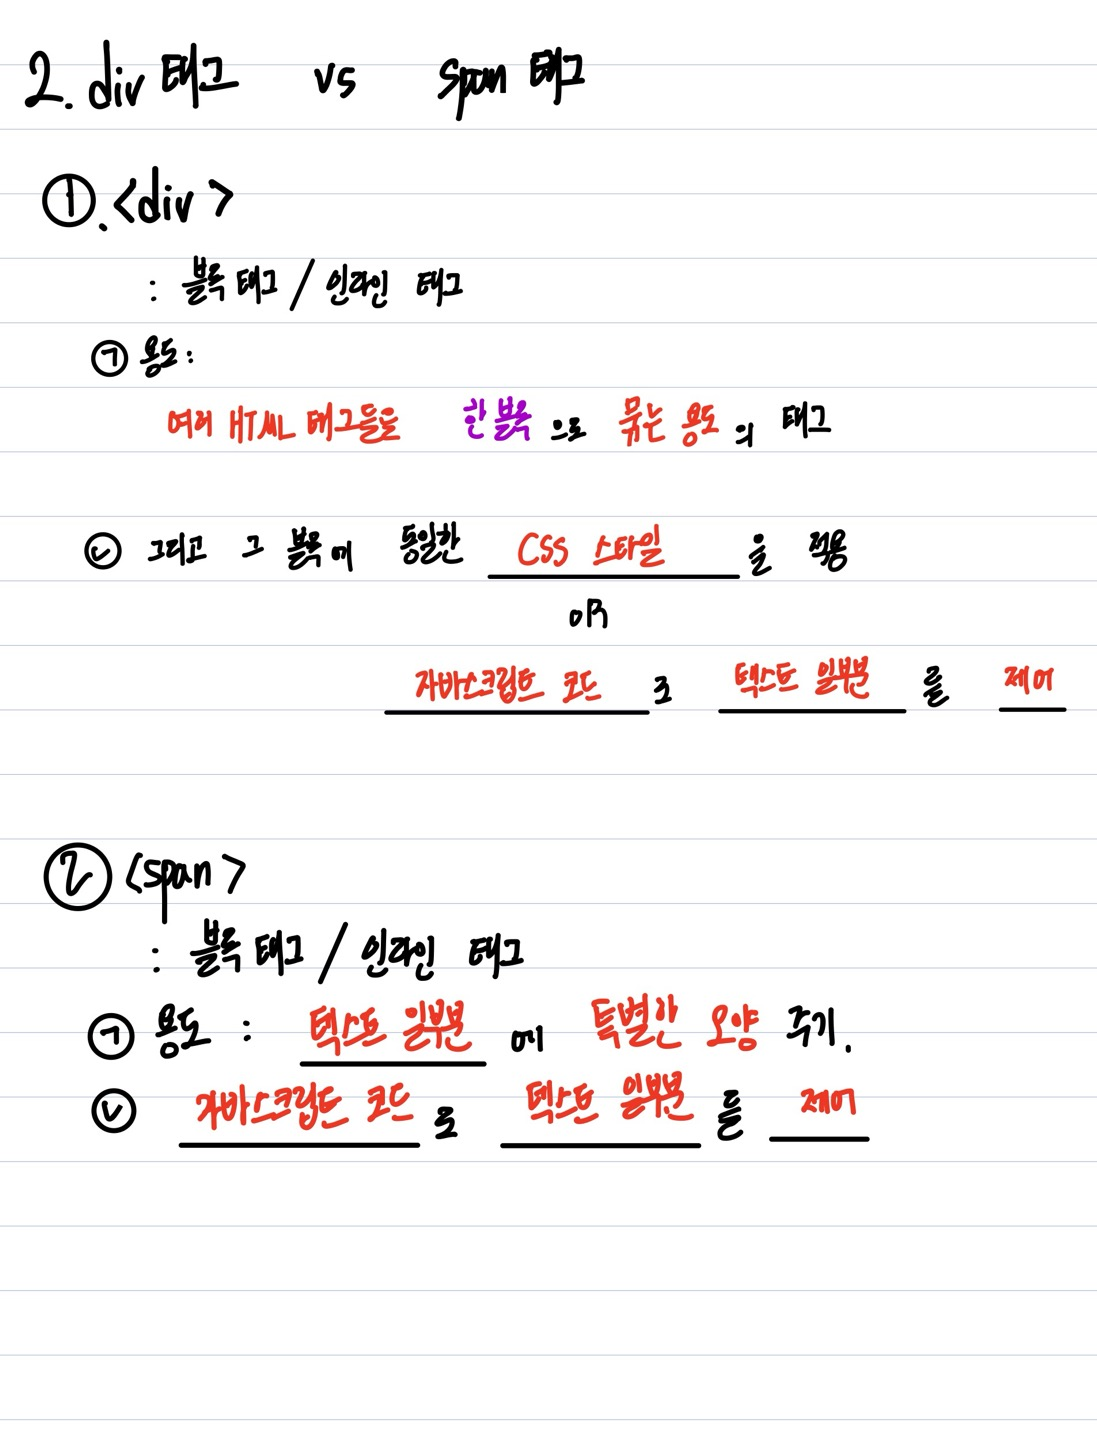 2. div 태그 vs span 태그
①. <div>
: 블록 태그 / 인라인 태그
㉠ 용도:
여러 HTML 태그들을 한 블록으로 묶는 용도의 태그
㉡ 그리고 그 블록에 동일한 CSS 스타일을 적용
OR
자바스크립트 코드로 텍스트 일부분를 제어
② <span>
: 블록 태그 / 인라인 태그
㉠ 용도 : 텍스트 일부분에 특별한 모양 주기.
㉡ 자바스크립트 코드로 텍스트 일부분를 제어